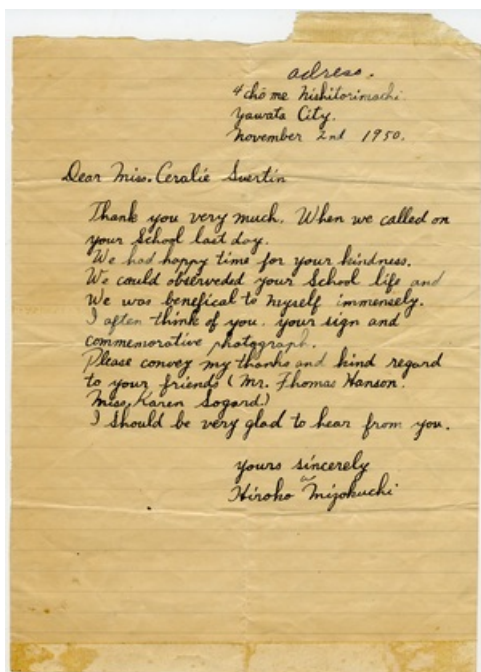 adress.
4 chōme Nishitorimachi.
Yawata City.
November 2nd 1950.
Dear Miss. Ceralie Suertin
Thank you very much. When we called on
your School last day.
We had happy time for your kindness.
We could observeded your School life and
We was benefical to myself immensely.
I often think of you. your sign and
commemorative photograph.
Please convey my thanks and kind regard
to your friends (Mr. Thomas Hanson.
Miss, Karen Sogard.)
I should be very glad to hear from you.
yours sincerely
Hiroko Mizokuchi